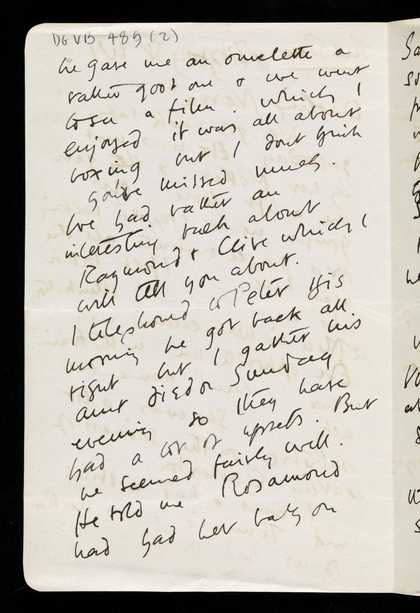 DGVB 489 (2)
he gave me an omelette a
rather good one & we went
to see a film. which I
enjoyed it was all about
boxing but I dont think
you've missed much.
We had rather an
interesting talk about
Raymond & Clive which I
will tell you about.
I telephoned to Peter this
morning he got back all
right but I gather his
aunt died on Sunday
evening so they have
had a lot of upsets. But
he seemed fairly well.
He told me Rosamond
had had her baby on